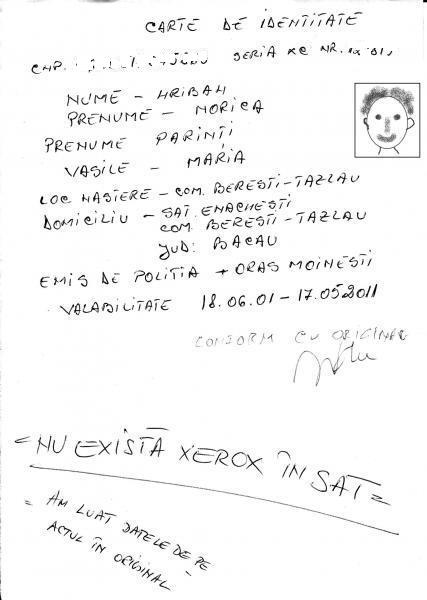 CARTE DE IDENTITATE
CNP. SERIA XC NR.
NUME – HRIBAH
PRENUME – NORICA
PRENUME PARINȚI
VASILE – MARIA
LOC NASTERE – COM. BERESTI-TAZLAU
DOMICILIU – SAT. ENACHESTI
COM. BERESTI-TAZLAU
JUD: BACAU
EMIS DE POLITIA + ORAS MOINESTI
VALABILITATE 18.06.01 – 17.05.2011
CONFORM CU ORIGINAL
= NU EXISTĂ XEROX ÎN SAT =
= AM LUAT DATELE DE PE
ACTUL ÎN ORIGINAL